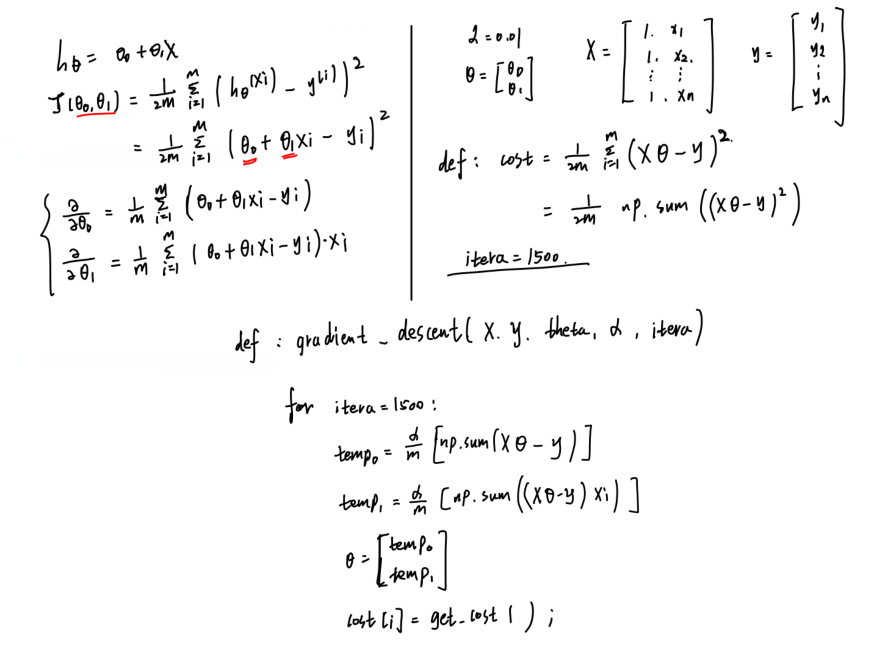 hθ = θ₀ + θ₁x
J(θ₀,θ₁) = 1/2m Σ_{i=1}^{M} (hθ^(xi) - y^(i))²
= 1/2m Σ_{i=1}^{M} (θ₀ + θ₁xi - yi)²
{ ∂/∂θ₀ = 1/m Σ_{i=1}^{M} (θ₀ + θ₁xi - yi)
∂/∂θ₁ = 1/m Σ_{i=1}^{M} (θ₀ + θ₁xi - yi)·xi
α = 0.01
θ = [θ₀ θ₁]
X = [1. x₁ 1. x₂. ⋮ ⋮ 1. xn]
y = [y₁ y₂ ⋮ yn]
def : cost = 1/2m Σ_{i=1}^{M} (Xθ - y)².
= 1/2m np. sum ((Xθ - y)²)
itera = 1500.
def : gradient_descent( X. y. theta, α, itera)
for itera = 1500 :
temp₀ = α/m [np.sum(Xθ - y)]
temp₁ = α/m [np. sum ((Xθ-y) xi)]
θ = [temp₀ temp₁]
cost[i] = get_cost ( ) ;